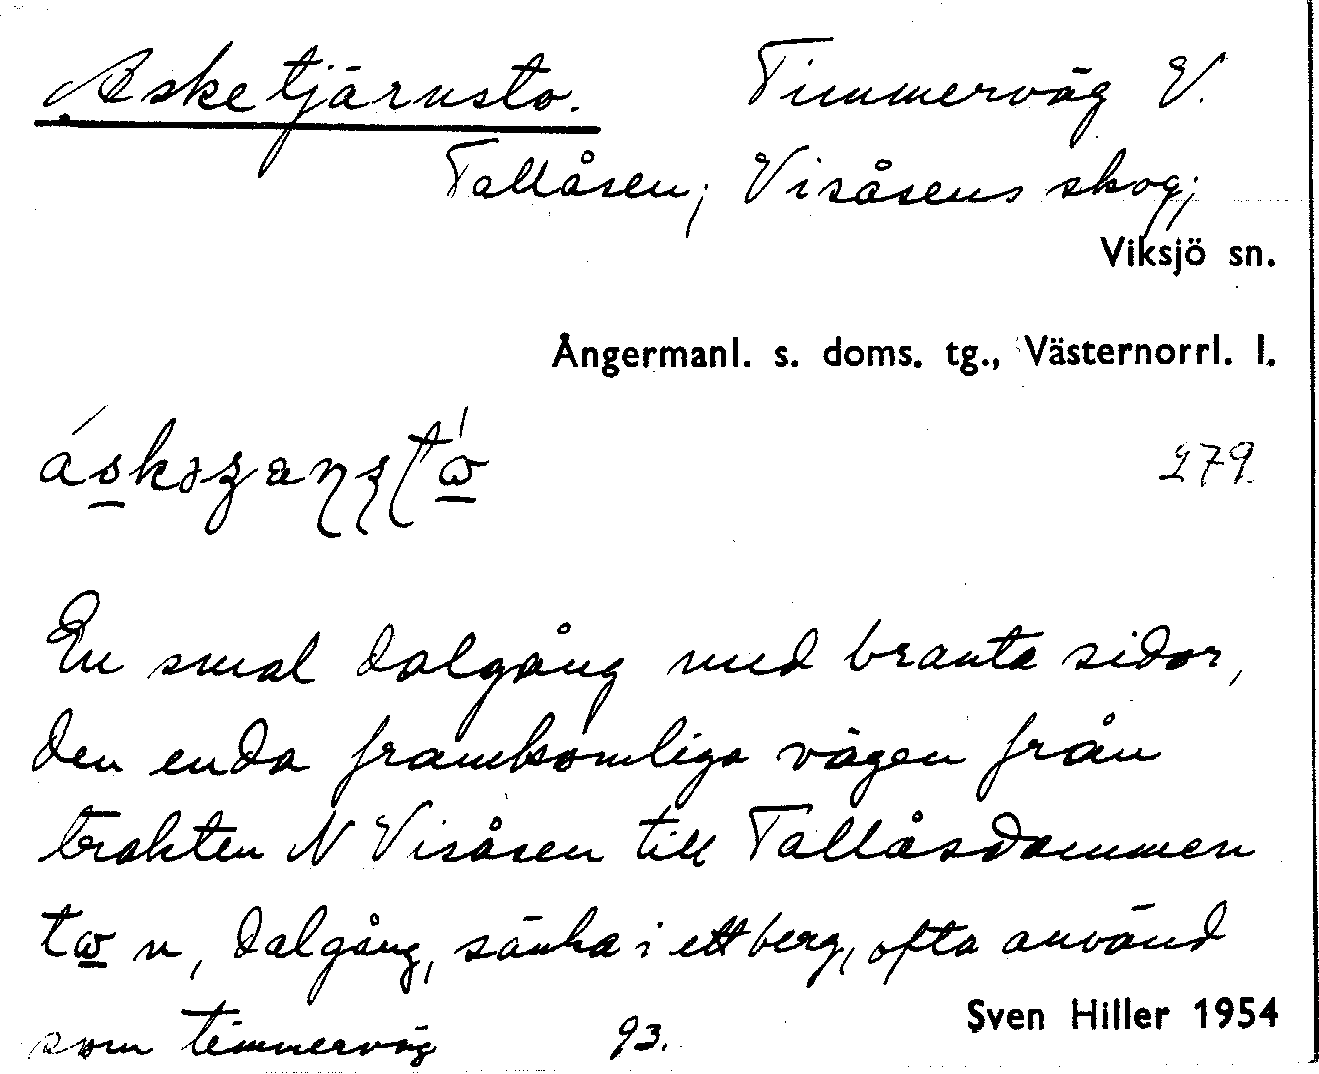 Asketjärnsto. Timmerväg V.
Tallåsen; Visåsens skog;
Viksjö sn.
Ångermanl. s. doms. tg., Västernorrl. l.
279.
En smal dalgång med branta sidor,
den enda framkomliga vägen från
trakten N Visåsen till Tallåsdammen
n, dalgång, sänka i ett berg, ofta använd
som timmerväg 93.
Sven Hiller 1954